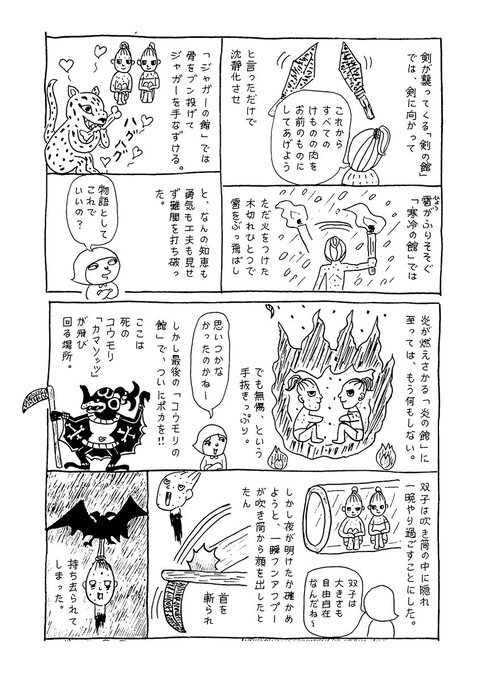 剣が襲ってくる「剣の館」
では、剣に向かって
これから
すべての
けものの肉を
お前のものに
してあげよう
と言っただけで
沈静化させ
雹がふりそそぐ
ひょう
「寒冷の館」では
ただ火をつけた
木切れひとつで
雹をぶっ飛ばし
「ジャガーの館」では
骨をブン投げて
ジャガーを手なずける。
と、なんの知恵も
勇気も工夫も見せ
ず難関を打ち破っ
た。
物語として
これで
いいの?
炎が燃えさかる「炎の館」に
至っては、もう何もしない。
でも無傷、という
手抜きっぷり。
思いつかな
かったのかねー
しかし最後の「コウモリの
館」で、ついにポカを!!
ここは
死の
コウモリ
「カマソッツ」
が飛び
回る場所。
双子は吹き筒の中に隠れ
一晩やり過ごすことにした。
双子は
大きさも
自由自在
なんだね〜
しかし夜が明けたか確かめ
ようと、一瞬フンアフプー
が吹き筒から顔を出したと
たん
首を
斬られ
持ち去られて
しまった。